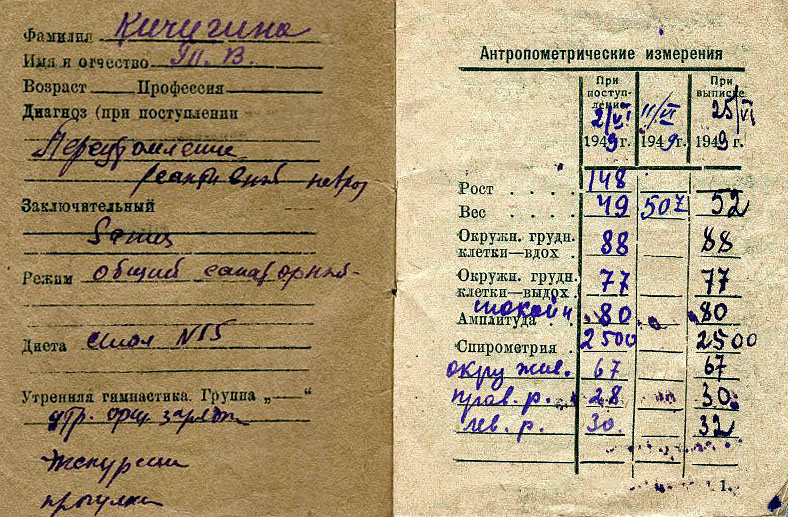 Фамилия Кичигина
Имя и отчество Т. В.
Возраст Профессия
Диагноз (при поступлении
Переутомление
реактивный невроз
Заключительный
Режим общий санаторный
Диета стол N15
Утренняя гимнастика. Группа „—“
утр. зарядка
Экскурсии
прогулки
Антропометрические измерения
При поступлении 2/VI 1949 г. 11/VI 1949 г. При выписке 25/VI 1949 г.
Рост . . . . 148
Вес . . . . 49 507 52
Окружн. грудн.
клетки—вдох . 88 88
Окружн. грудн.
клетки—выдох . 77 77
спокойн
Амплитуда . . 80 80
Спирометрия . 2500 2500
окру жив. 67 67
прав. р. 28 30
лев. р. 30 32
1.